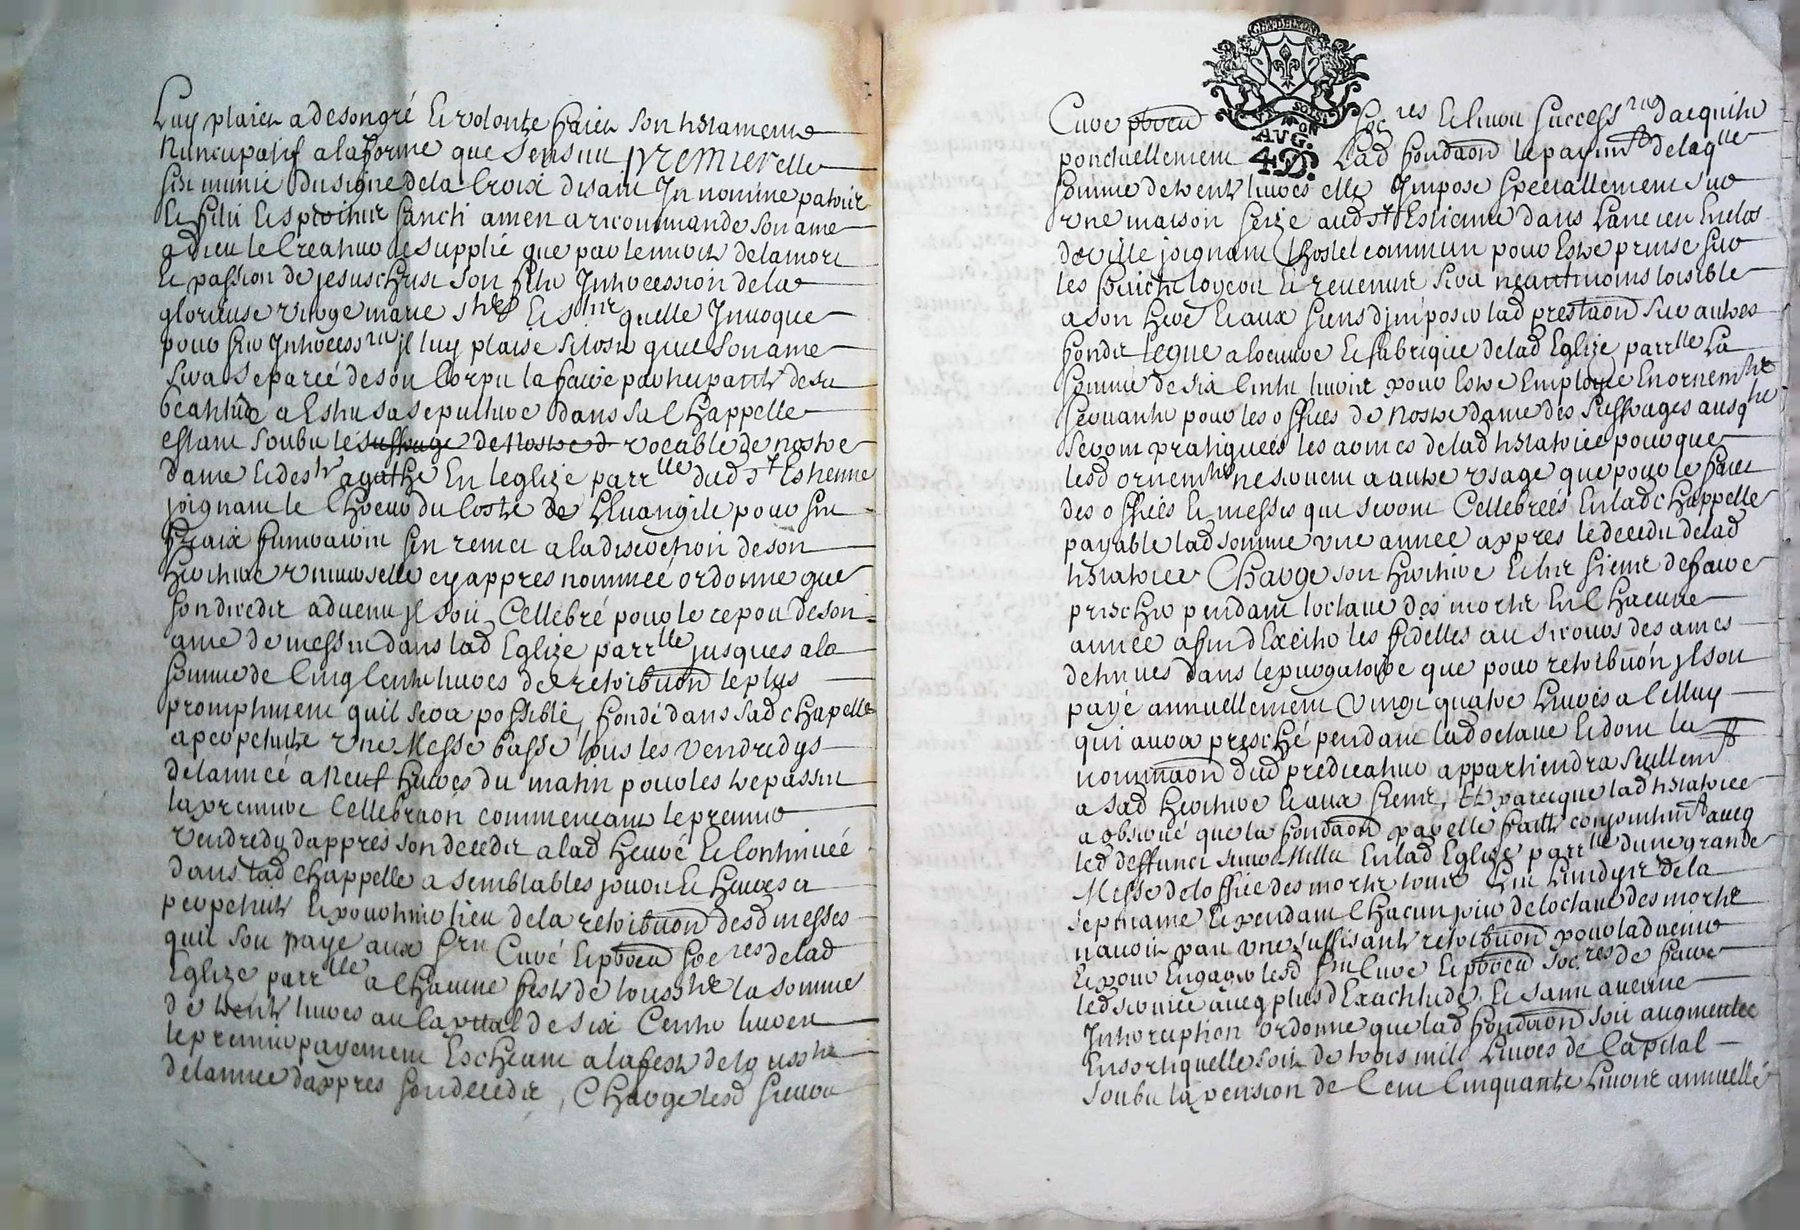 Luy plaict a de son gré Et volonté faict son testament
Nuncupatif a la forme que sensuit premier elle
sest munie du signe de la Croix disant In nomine patris
Et filii Et spiritus sancti amen a recommandé son ame
a dieu le Createur le supplie que par le merite de la mort
Et passion de jesus christ son fils Intercession de la
glorieuse vierge marie quelle Invoque
pour Intercess il luy plaise sitost que son ame
sera separée de son Corps la faire participante de sa
beatitude a Esleu sa sepulture dans sa Chappelle
estant soubs le suffrage de Nostre d vocable de nostre
dame Et de ste agathe En leglize parrlle dud st Estienne
joignant le Choeur du Costé de Lévangile pour ses
fraix funeraires sen remet a la discretion de son
heritiere universelle cy appres nommée ordonne que
son deceds advenu il soit Cellebré pour le repos de son
ame de messes dans lad Eglize parrlle jusques a la
somme de Cinq Cents livres de retribuon le plus
promptement quil sera possible, fonde dans sad chapelle
a perpetuité une Messe basse tous les vendredys
de lannée a neuf heures du matin pour les trepassés
la premiere Cellebraon commencant le premier
vendredy dappres son deceds a lad heure Et Continuée
dans lad chappelle a semblables jours Et heures a
perpetuité Et pour tenir lieu de la retribuon desd messes
quil soit payé aux srs Curé Et pbres soc res de lad
Eglize parrlle a Chacune feste de touss la somme
de trente livres au Capital de six Cents livres
le premier payement Escheant a la feste de touss
de lannée dappres son deceds, Charge lesd sieurs
GEN DE LYON
AUG.
4D.
Curé pbres soc res Et leurs success dacquitter
ponctuellement lad fondaon le payemt de laqlle
somme de trente livres elle Impose speciallement sur
une maison size aud st Estienne dans lancien Enclos
de ville joignant lhostel commun pour Estre prinse sur
les fruicts loyers Et revenus sera neantmoins loisible
a son heire Et aux siens dimposer lad prestaon sur autres
fonds Legue a loeuvre Et fabrique de lad Eglize parrlle La
somme de six Cents livres pour Estre Employée En ornemts
servants pour les offices de nostre dame des suffrages ausq
seront pratiquées les armes de lad testatrice pour que
lesd ornemts ne servent a autre usage que pour le faict
des offices Et messes qui seront Cellebrées En lad chappelle
payable lad somme une année appres le deceds de lad
testatrice Charge son heritiere Et les siens de faire
prescher pendant loctave des morts En Chacune
année afin dExciter les fidelles au secours des ames
detenues dans le purgatoire que pour retribuon il soit
payé annuellement vingt quatre Livres a Celluy
qui aura presché pendant lad octave Et dont la
nominaon dud predicateur appartiendra seullemt
a sad heritiere Et aux siens, Et parceque lad testatrice
a observé que la fondaon par elle faitte conjointemt avecq
led deffunct sieur En lad Eglize parrlle dune grande
Messe de loffice des morts tous Les Lundys de la
sepmaine Et pendant Chacun jour de loctave des morts
navoit pas une suffisante retribuon pour ladvenir
Et pour Engager lesd srs Curé Et pbres soc res de faire
led service avecq plus dExactitude Et sans aucune
Interruption ordonne que lad fondaon soit augmentée
En sorte quelle soit de trois mille Livres de Capital
soubs la pension de Cent Cinquante Livres annuelle